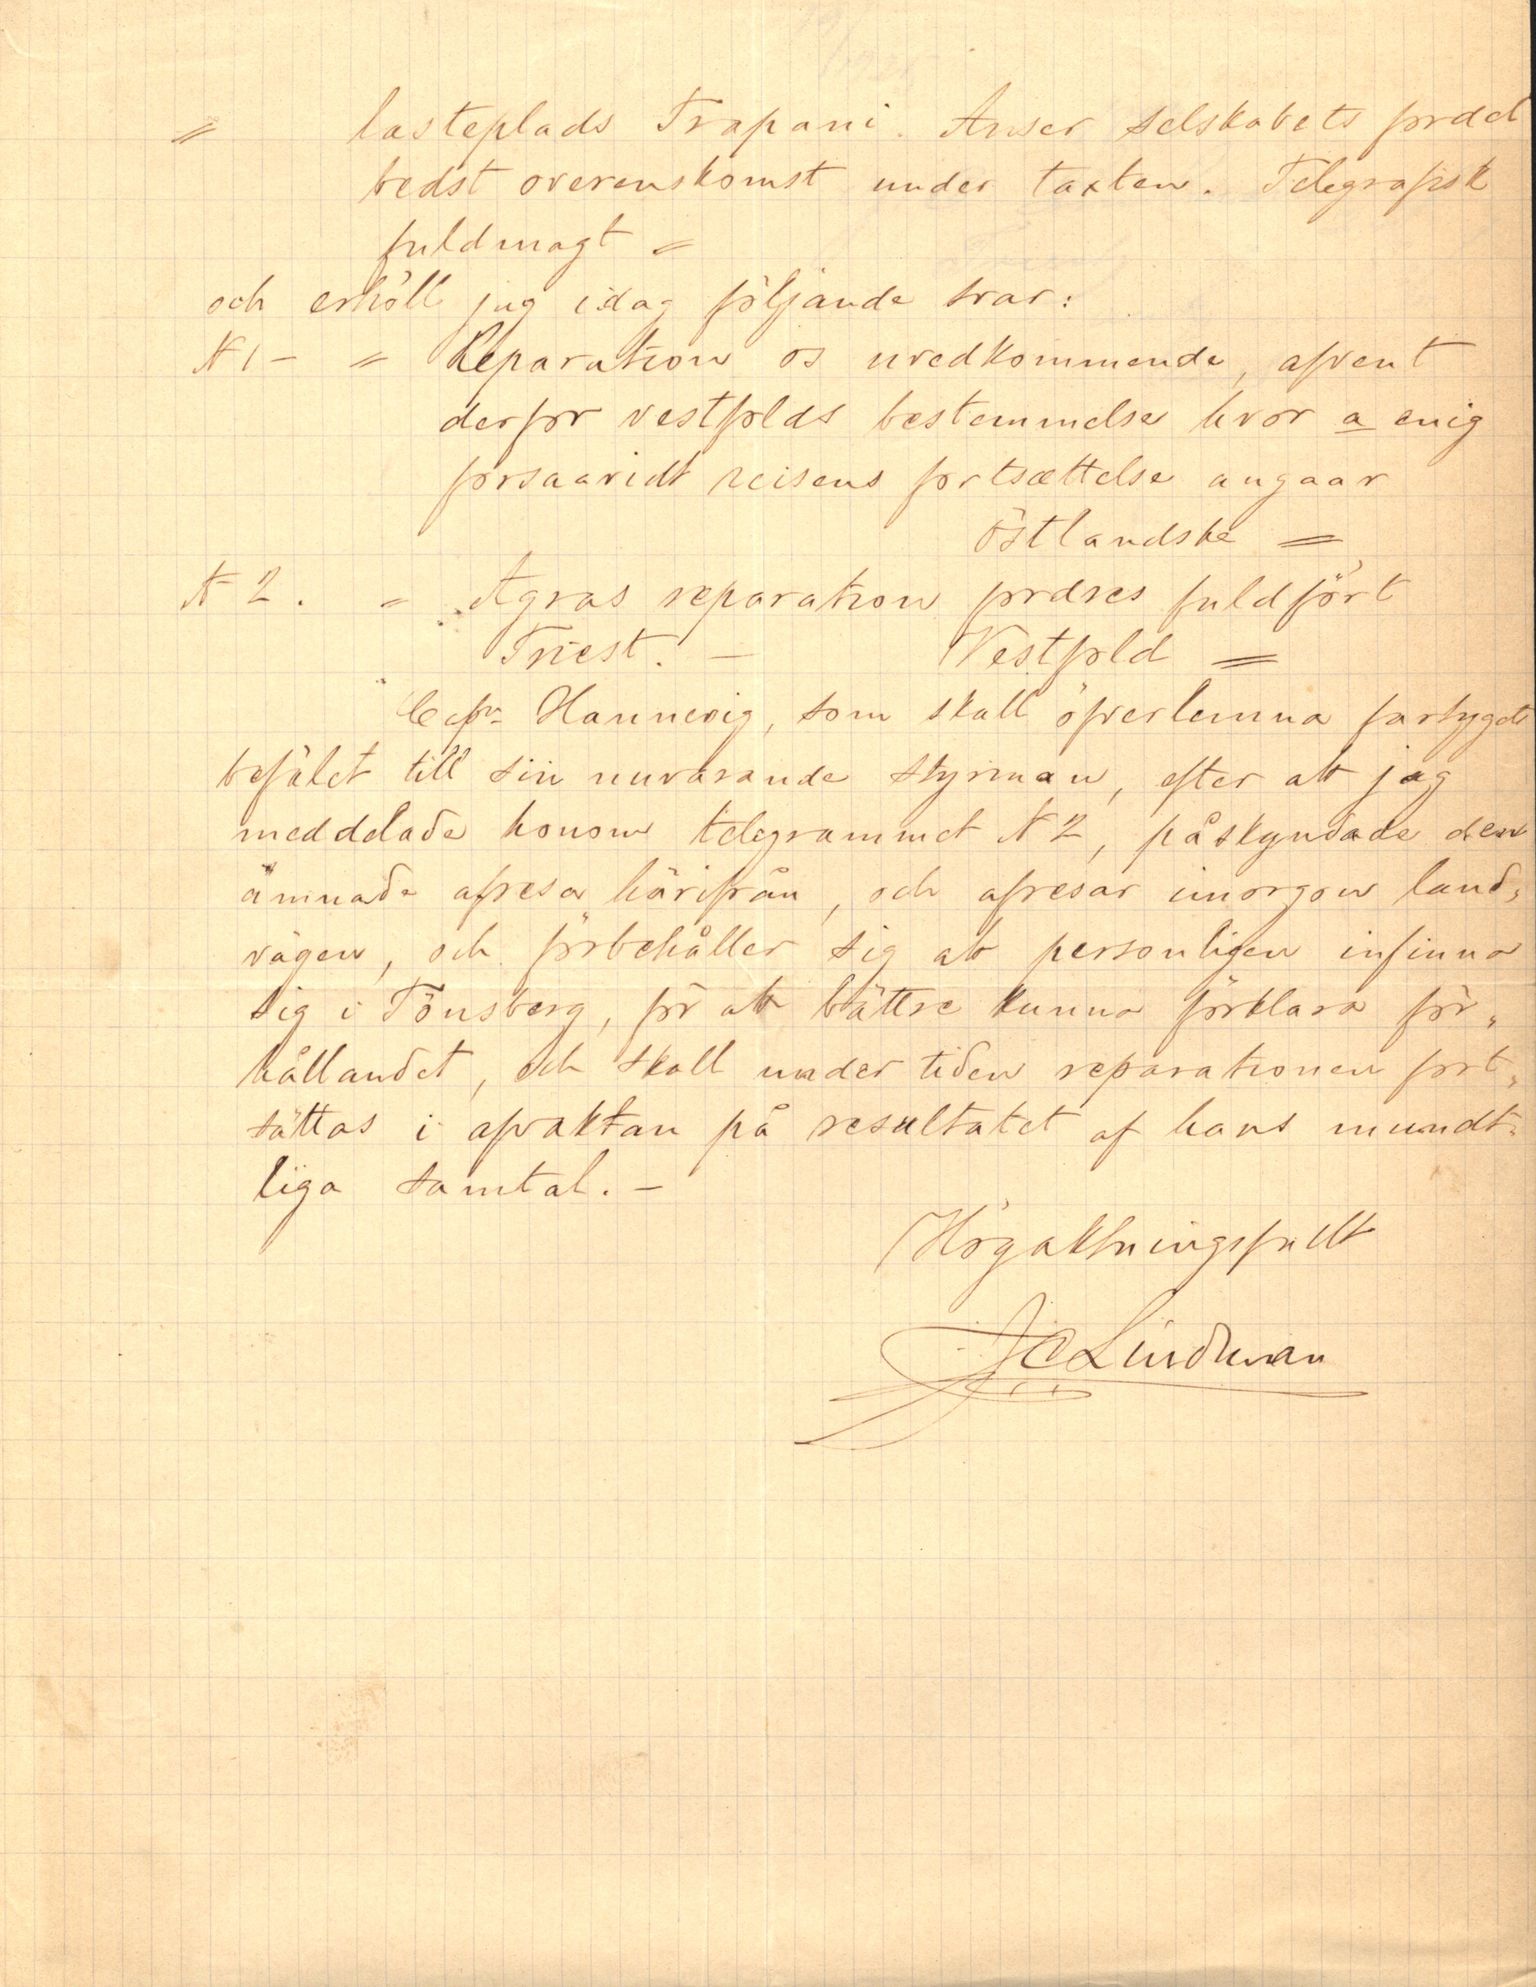 " lasteplads Trapani. Anser selskabets fordel
bedst overenskomst under taxten. Telegrafisk
fuldmagt "
och erhöll jag idag följande svar:
N 1 - " Reparation os uvedkommende, afvent
derfor vestfolds bestemmelse hvor a enig
forsaavidt reisens fortsættelse angaar
Östlandske =
N 2. " Agras reparation fordres fuldfört
Triest. - Vestfold =
Capn Hannevig, som skall öfverlemna fartygets
befälet till sin nuvarande styrman, efter att jag
meddelade honom telegrammet N 2, påskyndade den
ämnade afresa härifrån, och afresar imorgon land,
vägen, och förbehåller sig att personligen infinna
sig i Tönsberg, för att bättre kunna förklara för,
hållandet, och skall under tiden reparationen fort,
sättas i afvaktan på resultatet af hans mundt,
liga samtal. -
Högaktningsfullt
J C Lindman